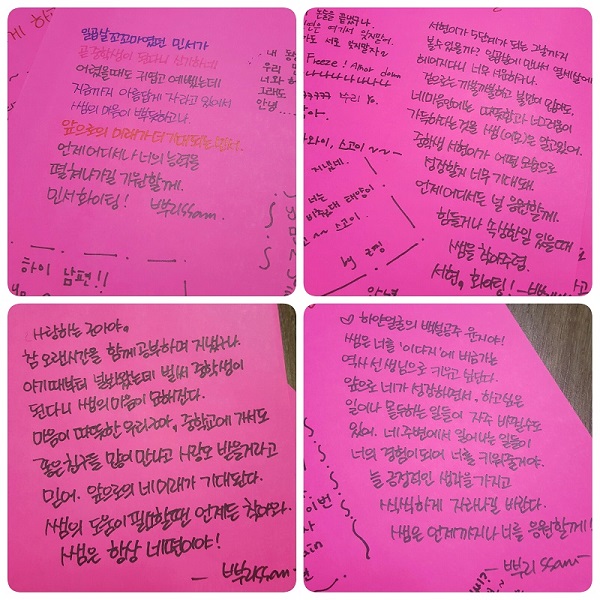 일곱살 꼬꼬마였던 민서가
곧 중학생이 된다니 신기하네
어렸을때도 귀엽고 예뻤는데
지금까지 아름답게 자라고 있어서
쌤의 마음이 뿌듯하고나.
앞으로의 미래가 더 기대되는 민서.
언제 어디서나 너의 능력을
펼쳐나가길 기원할게.
민서 화이팅! 뿌리ssam.
하이 남편!!
서현이가 5단계가 되는 그날까지
볼수있을까? 일곱살에 만나서 열세살에
헤어지다니 너무 서운하구나.
겉으로는 까불까불하고 불평이 많아도
네 마음안에는 따뜻함과 너그러움이
가득하다는것을 쌤은 알고있어.
중학생 서현이가 어떤 모습으로
성장할지 너무 기대돼.
언제 어디서든 널 응원할게.
힘들거나 속상한일 있을때
쌤을 찾아주렴.
서현, 화이팅!
Freeze!
뿌리 yo.
지냈네.
by
사랑하는 주아야.
참 오랜시간을 함께 공부하며 지냈구나.
아기때부터 널 봐왔는데 벌써 중학생이
된다니 쌤의 마음이 묘해진다.
마음이 따뜻한 우리 주아, 중학교에 가서도
좋은 친구들 많이 만나고 사랑도 받을거라고
믿어. 앞으로의 네 미래가 기대된다.
쌤의 도움이 필요할땐 언제든 찾아와.
쌤은 항상 네편이야!
- 뿌리ssam -
♡ 하얀얼굴의 백설공주 윤지야!
쌤은 너를 '이다지'에 버금가는
역사 선생님으로 키우고 싶단다.
앞으로 네가 성장하면서, 하고싶은
일이나 몰두하는 일들이 자주 바뀔수도
있어. 네 주변에서 일어나는 일들이
너의 경험이 되어 너를 키워줄거야.
늘 긍정적인 생각을 가지고
씩씩하게 자라나길 바란다.
쌤은 언제까지나 너를 응원할게!
- 뿌리ssam -